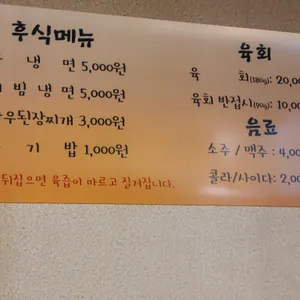 후식메뉴
냉 면 5,000원
빔 냉 면 5,000원
우된장찌개 3,000원
기 밥 1,000원
뒤집으면 육즙이 마르고 질겨집니다.
육회
육 회(180g): 20,00
육회 반접시(90g): 10,00
음료
소주 / 맥주 : 4,00
콜라/사이다: 2,00